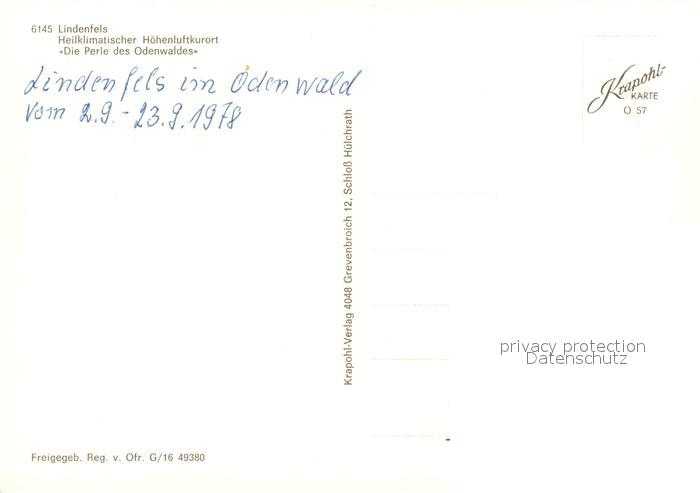 6145 Lindenfels
Heilklimatischer Höhenluftkurort
»Die Perle des Odenwaldes«
Lindenfels im Odenwald
vom 2.9.-23.9.1978
Krapohl-
KARTE
O 57
Krapohl-Verlag 4048 Grevenbroich 12, Schloß Hülchrath
privacy protection
Datenschutz
Freigegeb. Reg. v. Ofr. G/16 49380